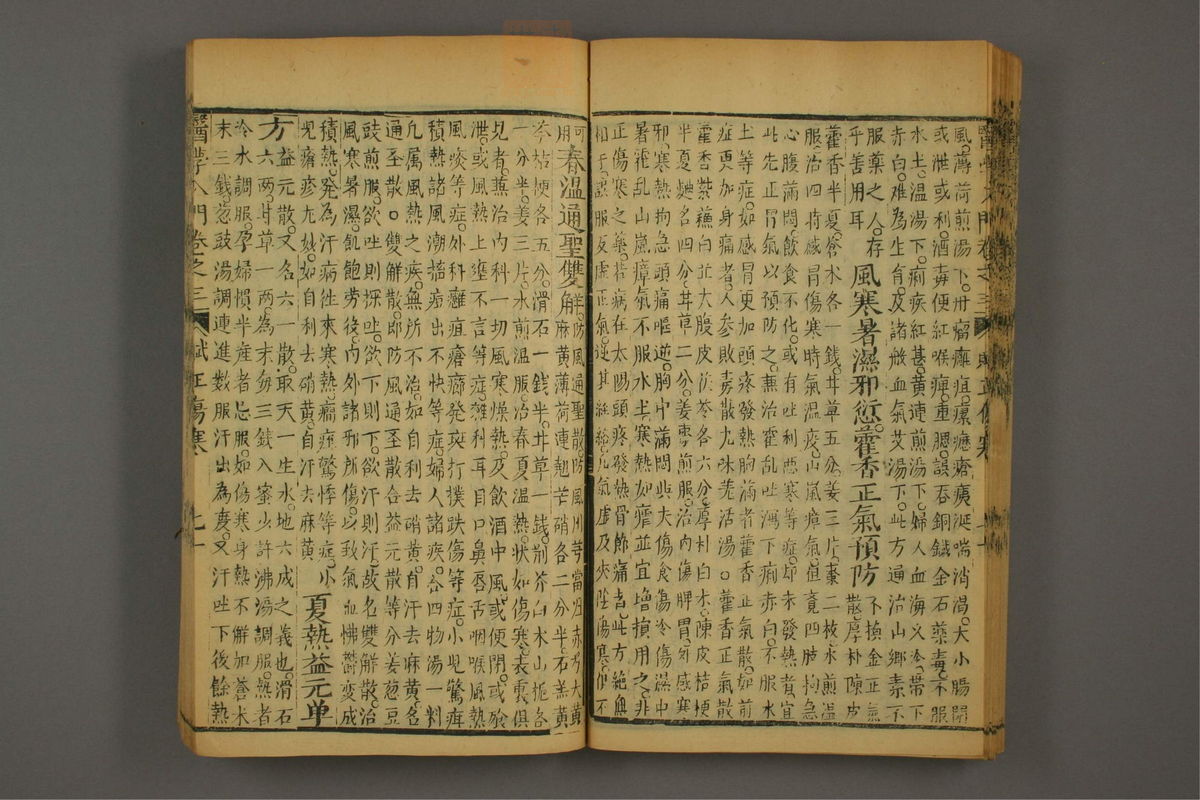 風薄荷煎湯下癍癱疽瘰癧瘡痍涎喘消渴大小腸閉
或泄或利酒毒便紅喉痺重腮誤吞銅鐵金石藥毒不服
水土溫湯下痢疾紅甚黃連煎湯下婦人血海久冷帶下
赤白難為生育及諸般血氣艾湯下此方通治山鄉素不
服藥之人存
乎善用耳
風寒暑濕邪愆藿香正氣預防
不換金正氣
散厚朴陳皮
藿香半夏蒼木各一錢甘草五分姜三片棗二枚水煎溫
服治四時感冒傷寒時氣溫疫山嵐瘴氣但覺四肢拘急
心腹滿悶飲食不化或有吐利惡寒等症却未發熱者宜
此先正胃氣以預防之兼治霍乱吐瀉下痢赤白不服水
上等症如感冒更加頭疼發熱胸滿者藿香正氣散如前
症更加身痛者人參敗毒散九味羌活湯○藿香正氣散
藿香紫蘇白芷大腹皮茯苓各六分厚朴白术陳皮桔梗
半夏麯各四分甘草二分姜棗煎服治內傷脾胃外感寒
邪寒熱拘急頭痛嘔逆胸中滿悶與夫傷食傷冷傷濕中
暑霍乱山嵐瘴氣不服水土寒熱如瘧並宜增損用之非
正傷寒之藥若病在太陽頭疼發熱骨節痛者此方絕無
相干誤服反虛正氣逆其經絡凡氣虛及夾陰傷寒但不
可
用
春溫通聖雙
解防風通聖散防風川芎當歸赤芍大黃
麻黃薄荷連翹芒硝各二分半石羔黃
芩桔梗各五分滑石一錢半甘草一錢荊芥白朮山梔各
一分半姜三片水煎溫服治春夏溫熱狀如傷寒表裏俱
見者兼治內科一切風寒燥熱及飲酒中風或便閉或飧
泄或風熱上壅不言等症雜科耳目口鼻唇舌咽喉風熱
風痰等症外科癰疽瘡癤發斑打撲跌傷等症小兒驚疳
積熱諸風潮搐痘出不快等症婦人諸疾合四物湯一料
凡属風熱之疾無所不治如自利去硝黃自汗去麻黃名
通圣散○雙解散即防風通圣散合益元散等分姜葱豆
豉煎服欲吐則探吐欲下則下欲汗則汗故名雙解散治
風寒暑濕飢飽勞後內外諸邪所傷以致氣血怫鬱变成
積熱發為汗病往來寒熱癇痙驚悸等症小
兒瘡疹尤妙如自利去硝黃自汗去麻黃
夏熱益元单
方
益元散又名六一散取天一生水地六成之義也滑石
六兩甘草一兩為末每三錢入蜜少許沸湯調服熱者
冷水調服孕婦慣半產者忌服如傷寒身熱不解加蒼朮
末三錢葱豉湯調連進數服汗出為度又汗吐下後餘熱
醫學入門卷之三